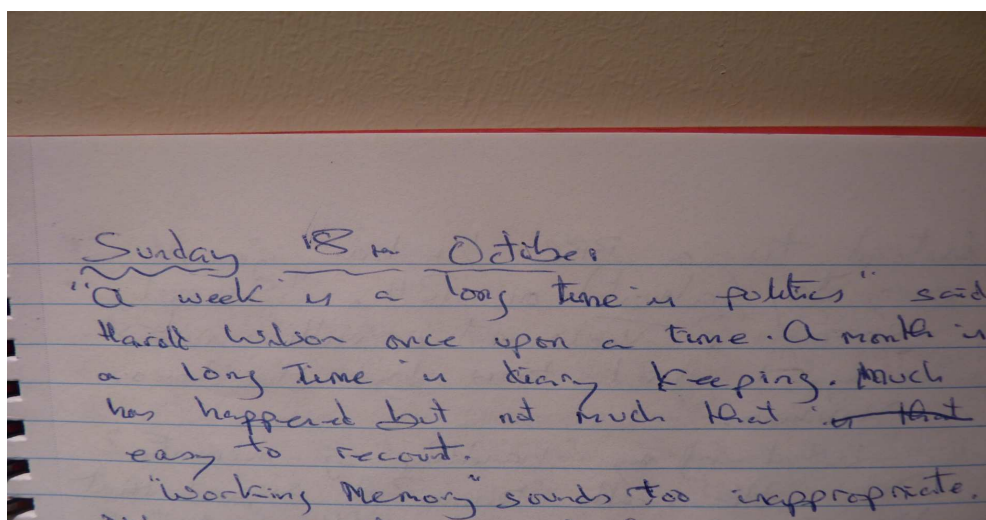 Sunday 18th October
"A week is a long time in politics" said
Harold Wilson once upon a time. A month is
a long time in diary keeping. Much
has happened but not much that is that
easy to recount.
"Working Memory" sounds too inappropriate.